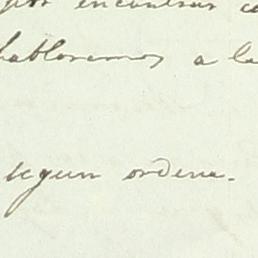 encontrar
hablaremos a la
segun ordene.